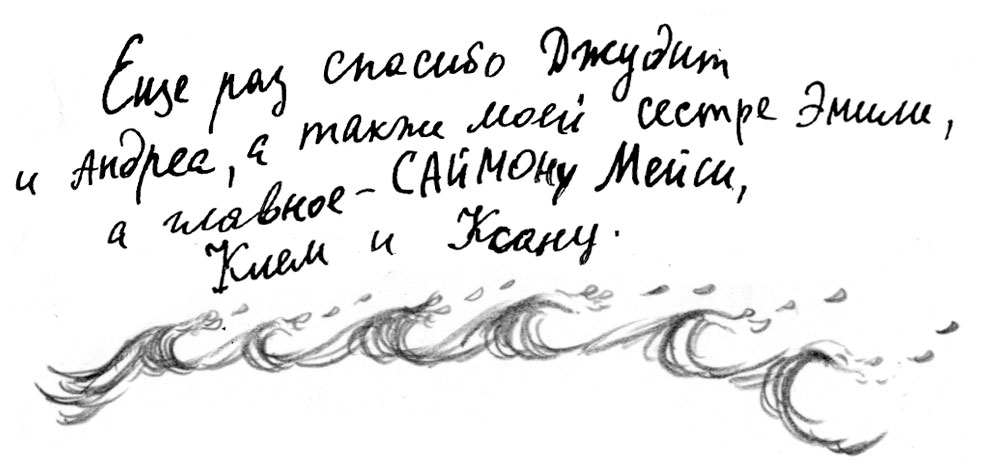 Еще раз спасибо Джудит
и Андреа, а также моей сестре Эмили,
а главное – САЙМОНу Мейси,
Клем и Ксану.